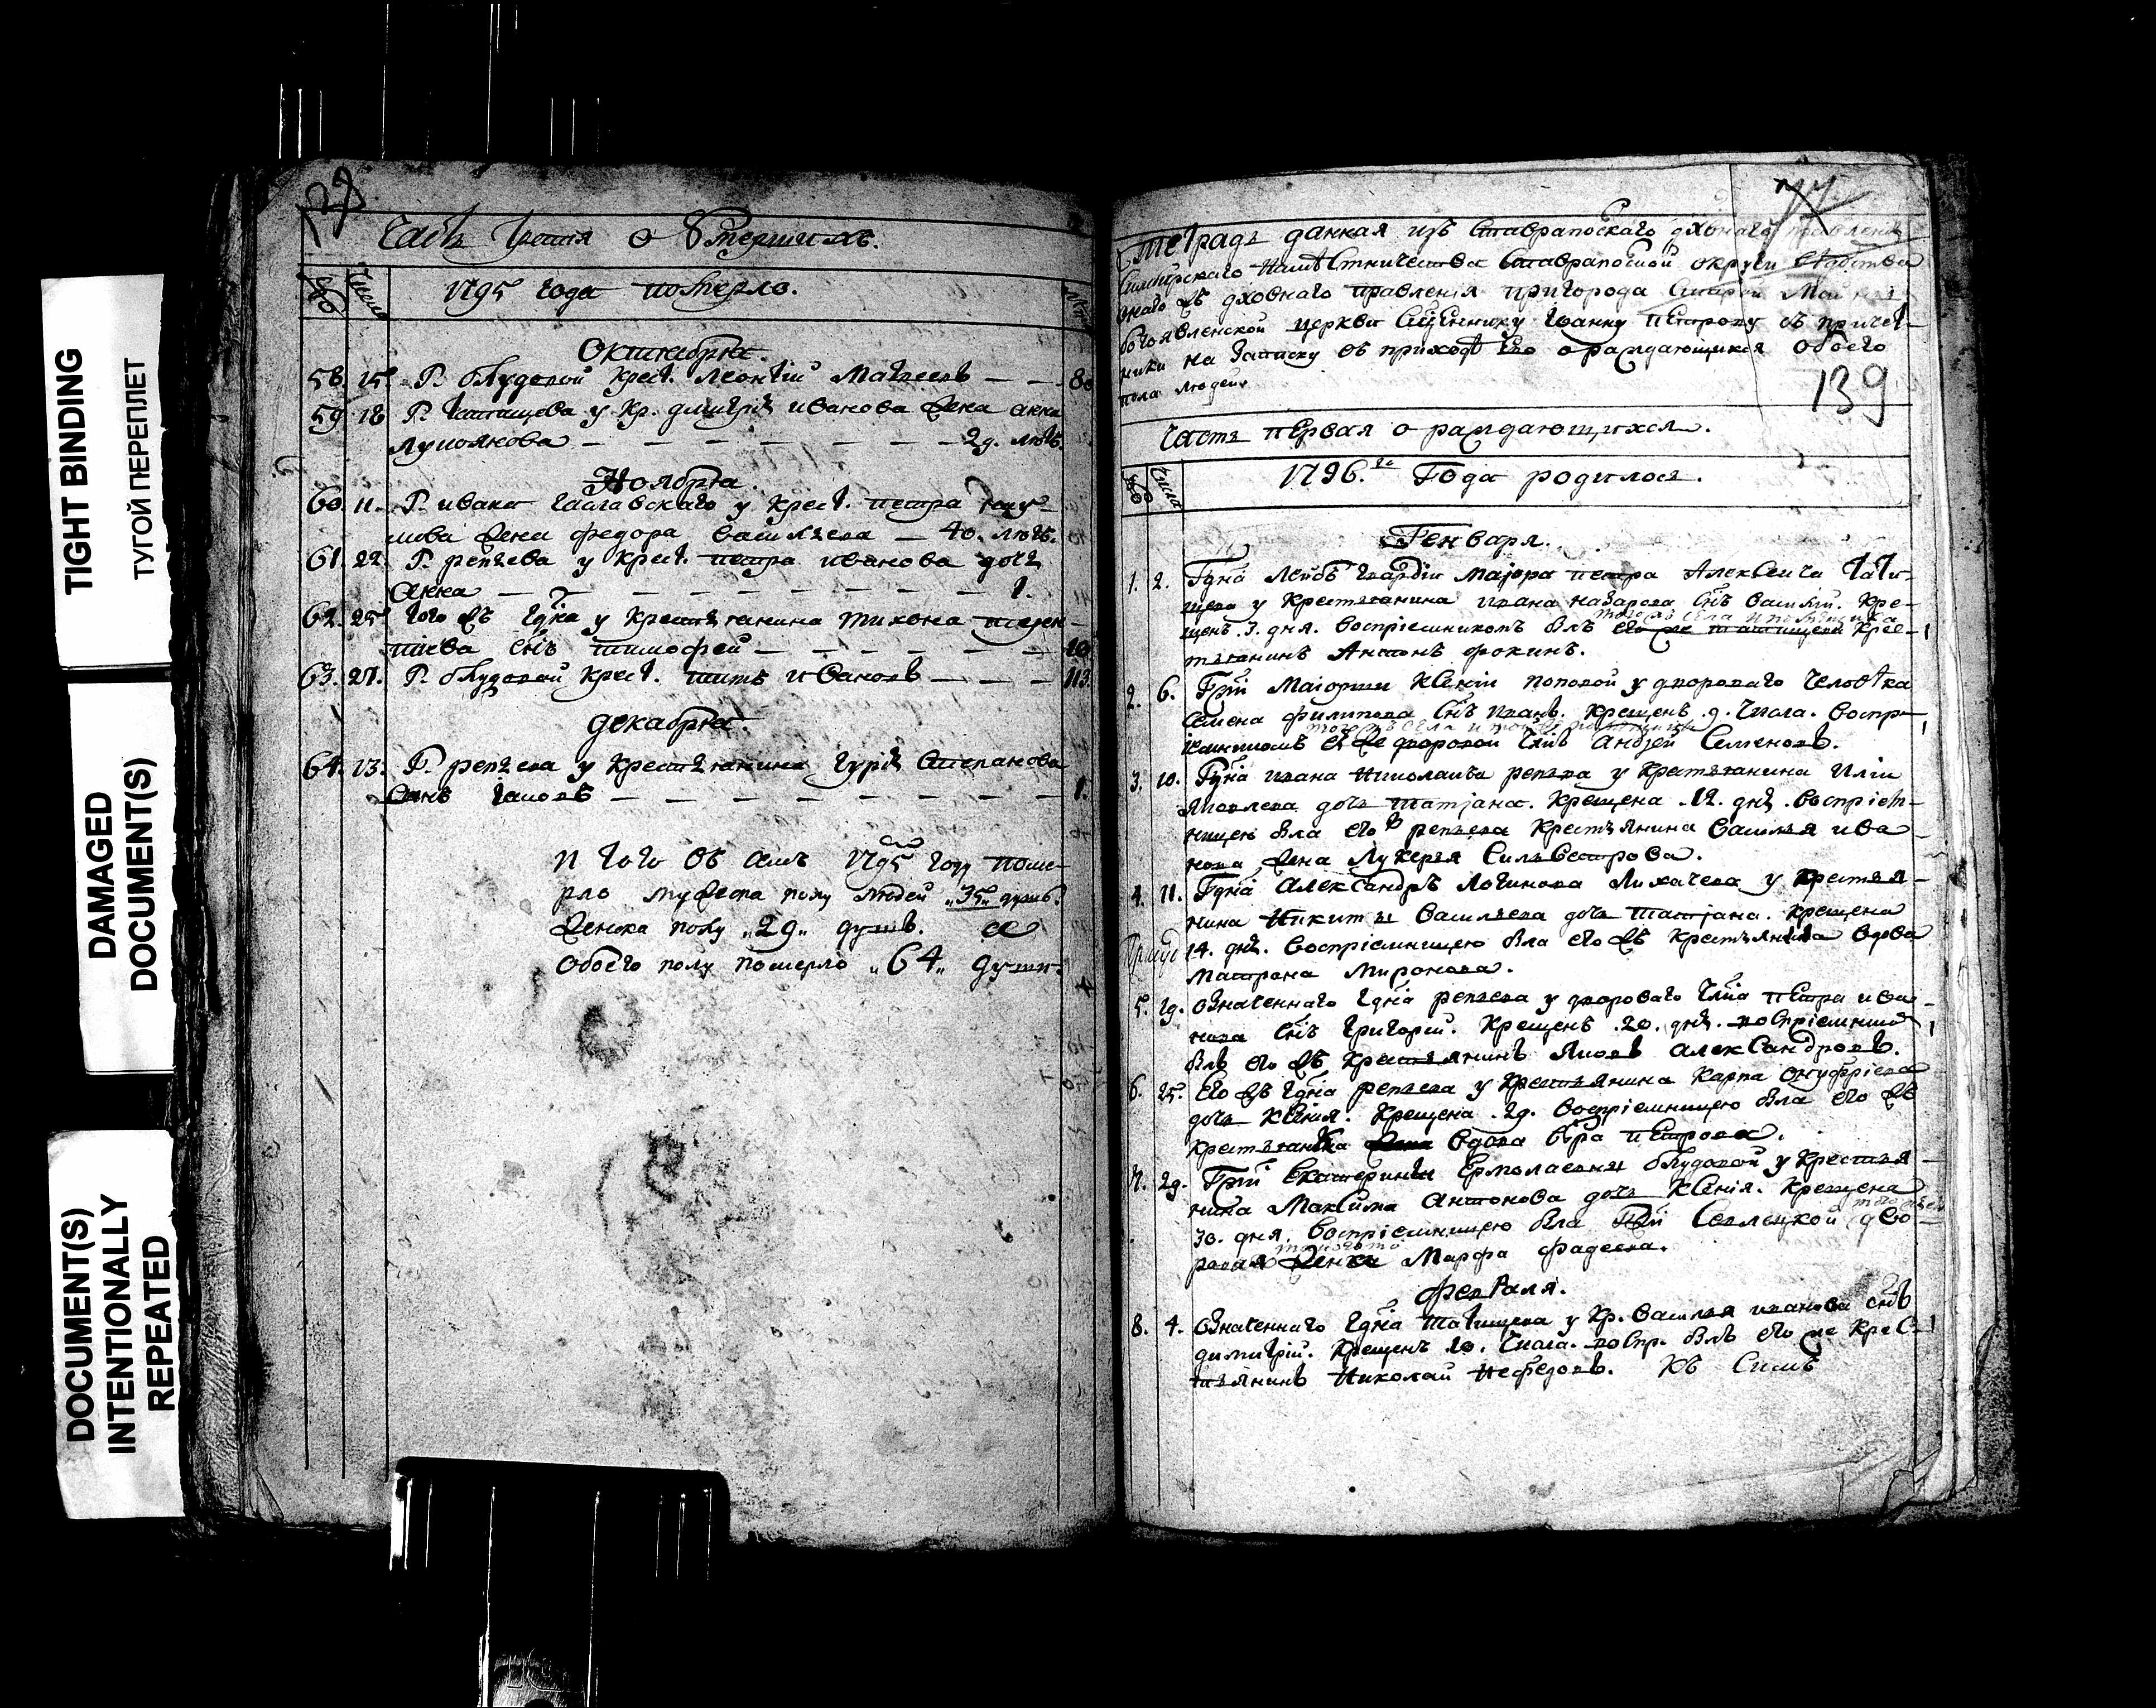 TIGHT BINDING
ТУГОЙ ПЕРЕПЛЕТ
DAMAGED
DOCUMENT(S)
DOCUMENT(S)
INTENTIONALLY
REPEATED
Часть третия о Умерших.
1795 года померло.
Октября.
58. 15. Г. блудовой крест. Леонтий Матвеевъ — — 80
59 18 Г. татищева у кр. дмитрія иванова жена анна
— — — 29. летъ.
Ноября.
60. 11. Г. ивана у крест. петра
жена федора васильева — 40. летъ.
61. 22. Г. репьева у крест. петра иванова дочь
анна — — — 1.
62. 25 того жъ Гдна у крестьянина тихона
снъ тимофей — — —
63. 27. Г. блудовой крест. титъ Ивановъ — — —
декабря.
64. 13. Г. репьева у крестьянина гурія степанова
сынъ яковъ — — — 1.
И того объ семъ 1795 году поме-
рло мужеска полу людей „35„ душъ.
женска полу „29„ душъ. а
обоего полу померло „64„ души.
тетрадь данная изъ Ставрапоскаго дховнаго правленія
Симбирскаго наместничества Ставрапоской округи
дховнаго правленія пригорода Майны
богоявленской церкви Сщеннику Іоанну петрову съ причет-
ники на записку въ приходе Его о раждающихся обоего
пола людей.
139
Часть первая о раждающихся.
1796.го Года родилося.
Генваря.
1. 2. Гдна Лейбъ гвардіи маіора петра Алексеича Тати-
щева у Крестьянина ивана назарова снъ василій. Кре-
щенъ .3. дня. воспріемникомъ блъ его же татищева крес-
тьянинъ Антонъ фокинъ.
2. 6. Гжи Маіорши Ксеніи поповой у двороваго человека
семена филипова снъ иванъ. крещенъ .9. числа. воспр-
ея же дворовой члвъ андрей Семеновъ.
3. 10. Гдна ивана николаича репьева у Крестьянина Иліи
Яковлева дочь татіана. Крещена .12. дня. воспріем-
ницею бла его жъ репьева Крестьянина василья ива
нова жена Лукерья Сильвестрова.
4. 11. Гдна александръ логинова лихачева у крестья-
нина никиты васильева дочь татіана. крещена
14. дня. воспріемницею бла его жъ крестьянка вдова
матрона Миронова.
5. 19. означеннаго Гдна репьева у двороваго члвка петра ива-
нова снъ григорей. Крещенъ .20. дня. воспріемникомъ
блъ его жъ крестьянинъ Яковъ александровъ.
6. 25. Его жъ Гдна репьева у крестьянина карпа онуфріева
дочь Ксенія. Крещена .29. воспріемницею бла его жъ
крестьянка вдова вера петрова.
7. 29. Гжи Екатерины Ермолаевны блудовой у крестья-
нина Максима антонова дочь Ксенія. Крещена
30. дня. воспріемницею бла Гжи дво-
ровая женка Марфа фадеева.
февраля.
8. 4. означеннаго Гдна татищева у кр. василья иванова снъ
димитрій. Крещенъ 10. числа. воспр. блъ его же крес-
тьянинъ николай нефедовъ. Къ Симъ